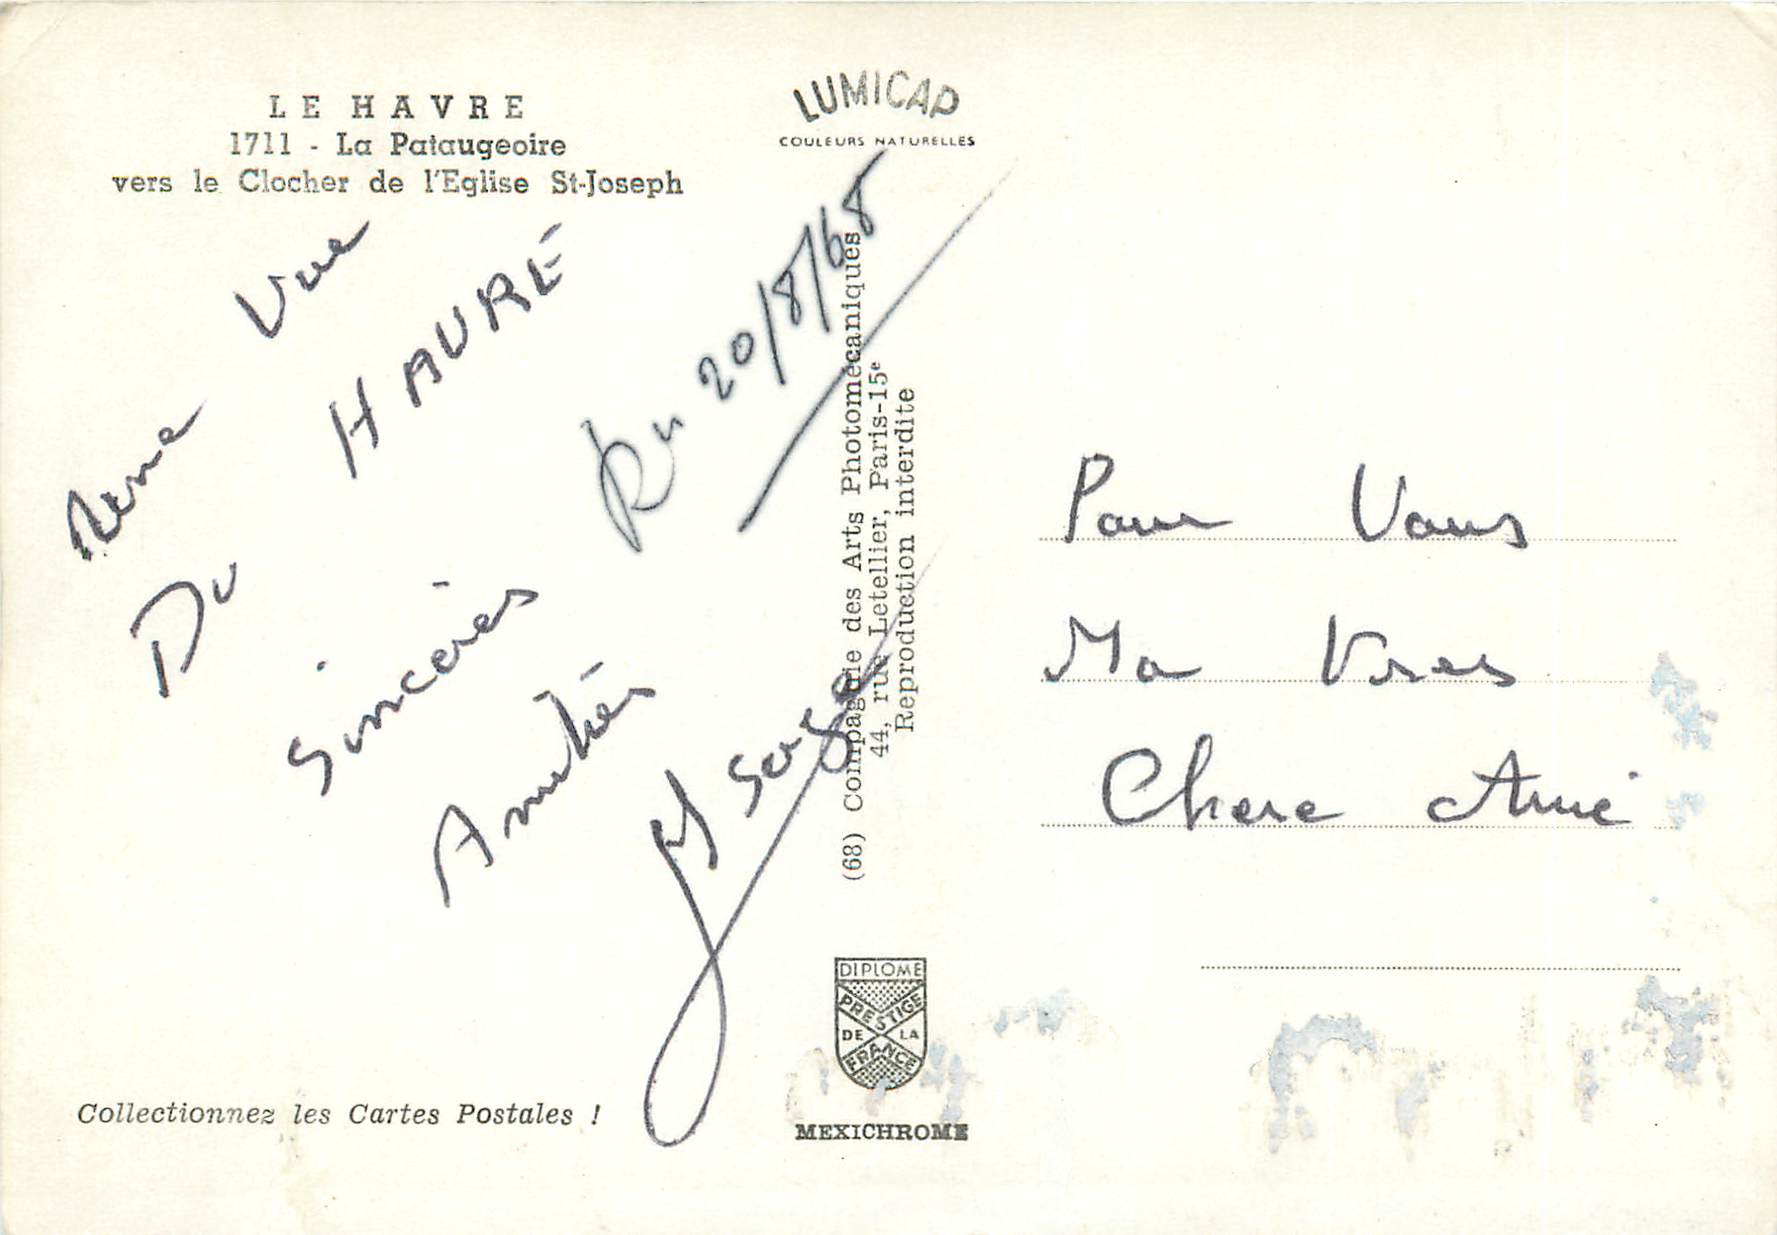 LE HAVRE
1711 - La Pataugeoire
vers le Clocher de l'Eglise St-Joseph
LUMICAP
COULEURS NATURELLES
Vue
Du HAVRE
Sincères
Amitiés
20/8/68
(68) Compagnie des Arts Photomécaniques
44, rue Letellier, Paris-15e
Reproduction interdite
Pour Vous
Ma
Chere Amie
DIPLOME
PRESTIGE
DE LA
FRANCE
MEXICHROME
Collectionnez les Cartes Postales !